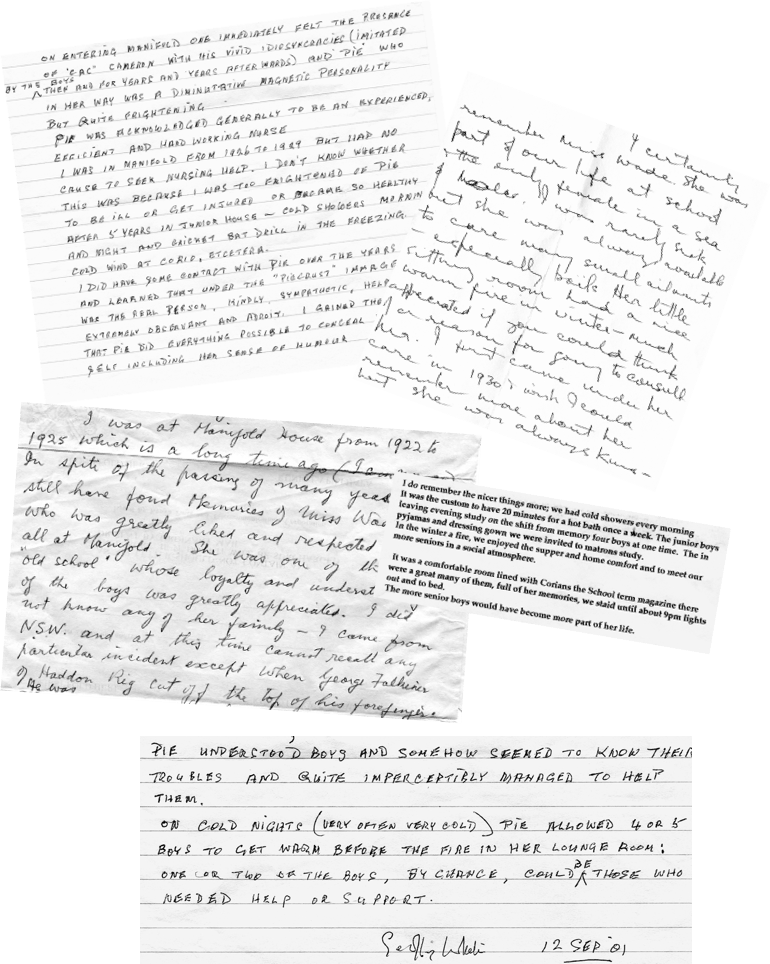 ON ENTERING MANIFOLD ONE IMMEDIATELY FELT THE PRESENCE
OF "CAC" CAMERON WITH HIS VIVID IDIOSYNCRACIES (IMITATED
BY THE BOYS THEN AND FOR YEARS AND YEARS AFTERWARDS) AND PIE WHO
IN HER WAY WAS A DIMINUTATIVE MAGNETIC PERSONALITY
BUT QUITE FRIGHTENING.
PIE WAS ACKNOWLEDGED GENERALLY TO BE AN EXPERIENCED,
EFFICIENT AND HARD WORKING NURSE
I WAS IN MANIFOLD FROM 1926 TO 1929 BUT HAD NO
CAUSE TO SEEK NURSING HELP. I DON'T KNOW WHETHER
THIS WAS BECAUSE I WAS TOO FRIGHTENED OF PIE
TO BE ILL OR GET INJURED OR BECAME SO HEALTHY
AFTER 5 YEARS IN JUNIOR HOUSE - COLD SHOWERS MORNIN
AND NIGHT AND CRICKET BAT DRILL IN THE FREEZING
COLD WIND AT CORIO, ETCETERA.
I DID HAVE SOME CONTACT WITH PIE OVER THE YEARS
AND LEARNED THAT UNDER THE "PIECRUST" IMMAGE
WAS THE REAL PERSON, KINDLY, SYMPATHETIC, HELP
EXTREMELY OBSERVANT AND ADROIT. I GAINED THE
THAT PIE DID EVERYTHING POSSIBLE TO CONCEAL
SELF INCLUDING HER SENSE OF HUMOUR
I certainly
remember Miss Wade. She was
part of our life at school
& the only female in a sea
of males. I was rarely sick
but she was always available
to care many small ailments
- especially boils. Her little
sitting room had a nice
warm fire in winter - much
appreciated if you could think
of a reason for going to consult
her. I first came under her
care in 1930. I wish I could
remember more about her
but she was always kind
I was at Manifold House from 1922 to
1925 which is a long time ago (I am
In spite of the passing of many years
still have fond Memories of Miss Wa
who was greatly liked and respected
all at Manifold. She was one of th
"old school" whose loyalty and underst
of the boys was greatly appreciated. I did
not know any of her family - I came from
N.S.W. and at this time cannot recall any
particular incident except when George Falkiner
of Haddon Rig cut off the top of his forefinger.
He was
I do remember the nicer things more; we had cold showers every morning
It was the custom to have 20 minutes for a hot bath once a week. The junior boys
leaving evening study on the shift from memory four boys at one time. The in
pyjamas and dressing gown we were invited to matrons study.
In the winter a fire, we enjoyed the supper and home comfort and to meet our
more seniors in a social atmosphere.
It was a comfortable room lined with Corians the School term magazine there
were a great many of them, full of her memories, we staid until about 9pm lights
out and to bed.
The more senior boys would have become more part of her life.
PIE UNDERSTOOD BOYS AND SOMEHOW SEEMED TO KNOW THEIR
TROUBLES AND QUITE IMPERCEPTIBLY MANAGED TO HELP
THEM.
ON COLD NIGHTS (VERY OFTEN VERY COLD) PIE ALLOWED 4 OR 5
BOYS TO GET WARM BEFORE THE FIRE IN HER LOUNGE ROOM;
ONE OR TWO OF THE BOYS, BY CHANCE, COULD BE THOSE WHO
NEEDED HELP OR SUPPORT.
12 SEP '01